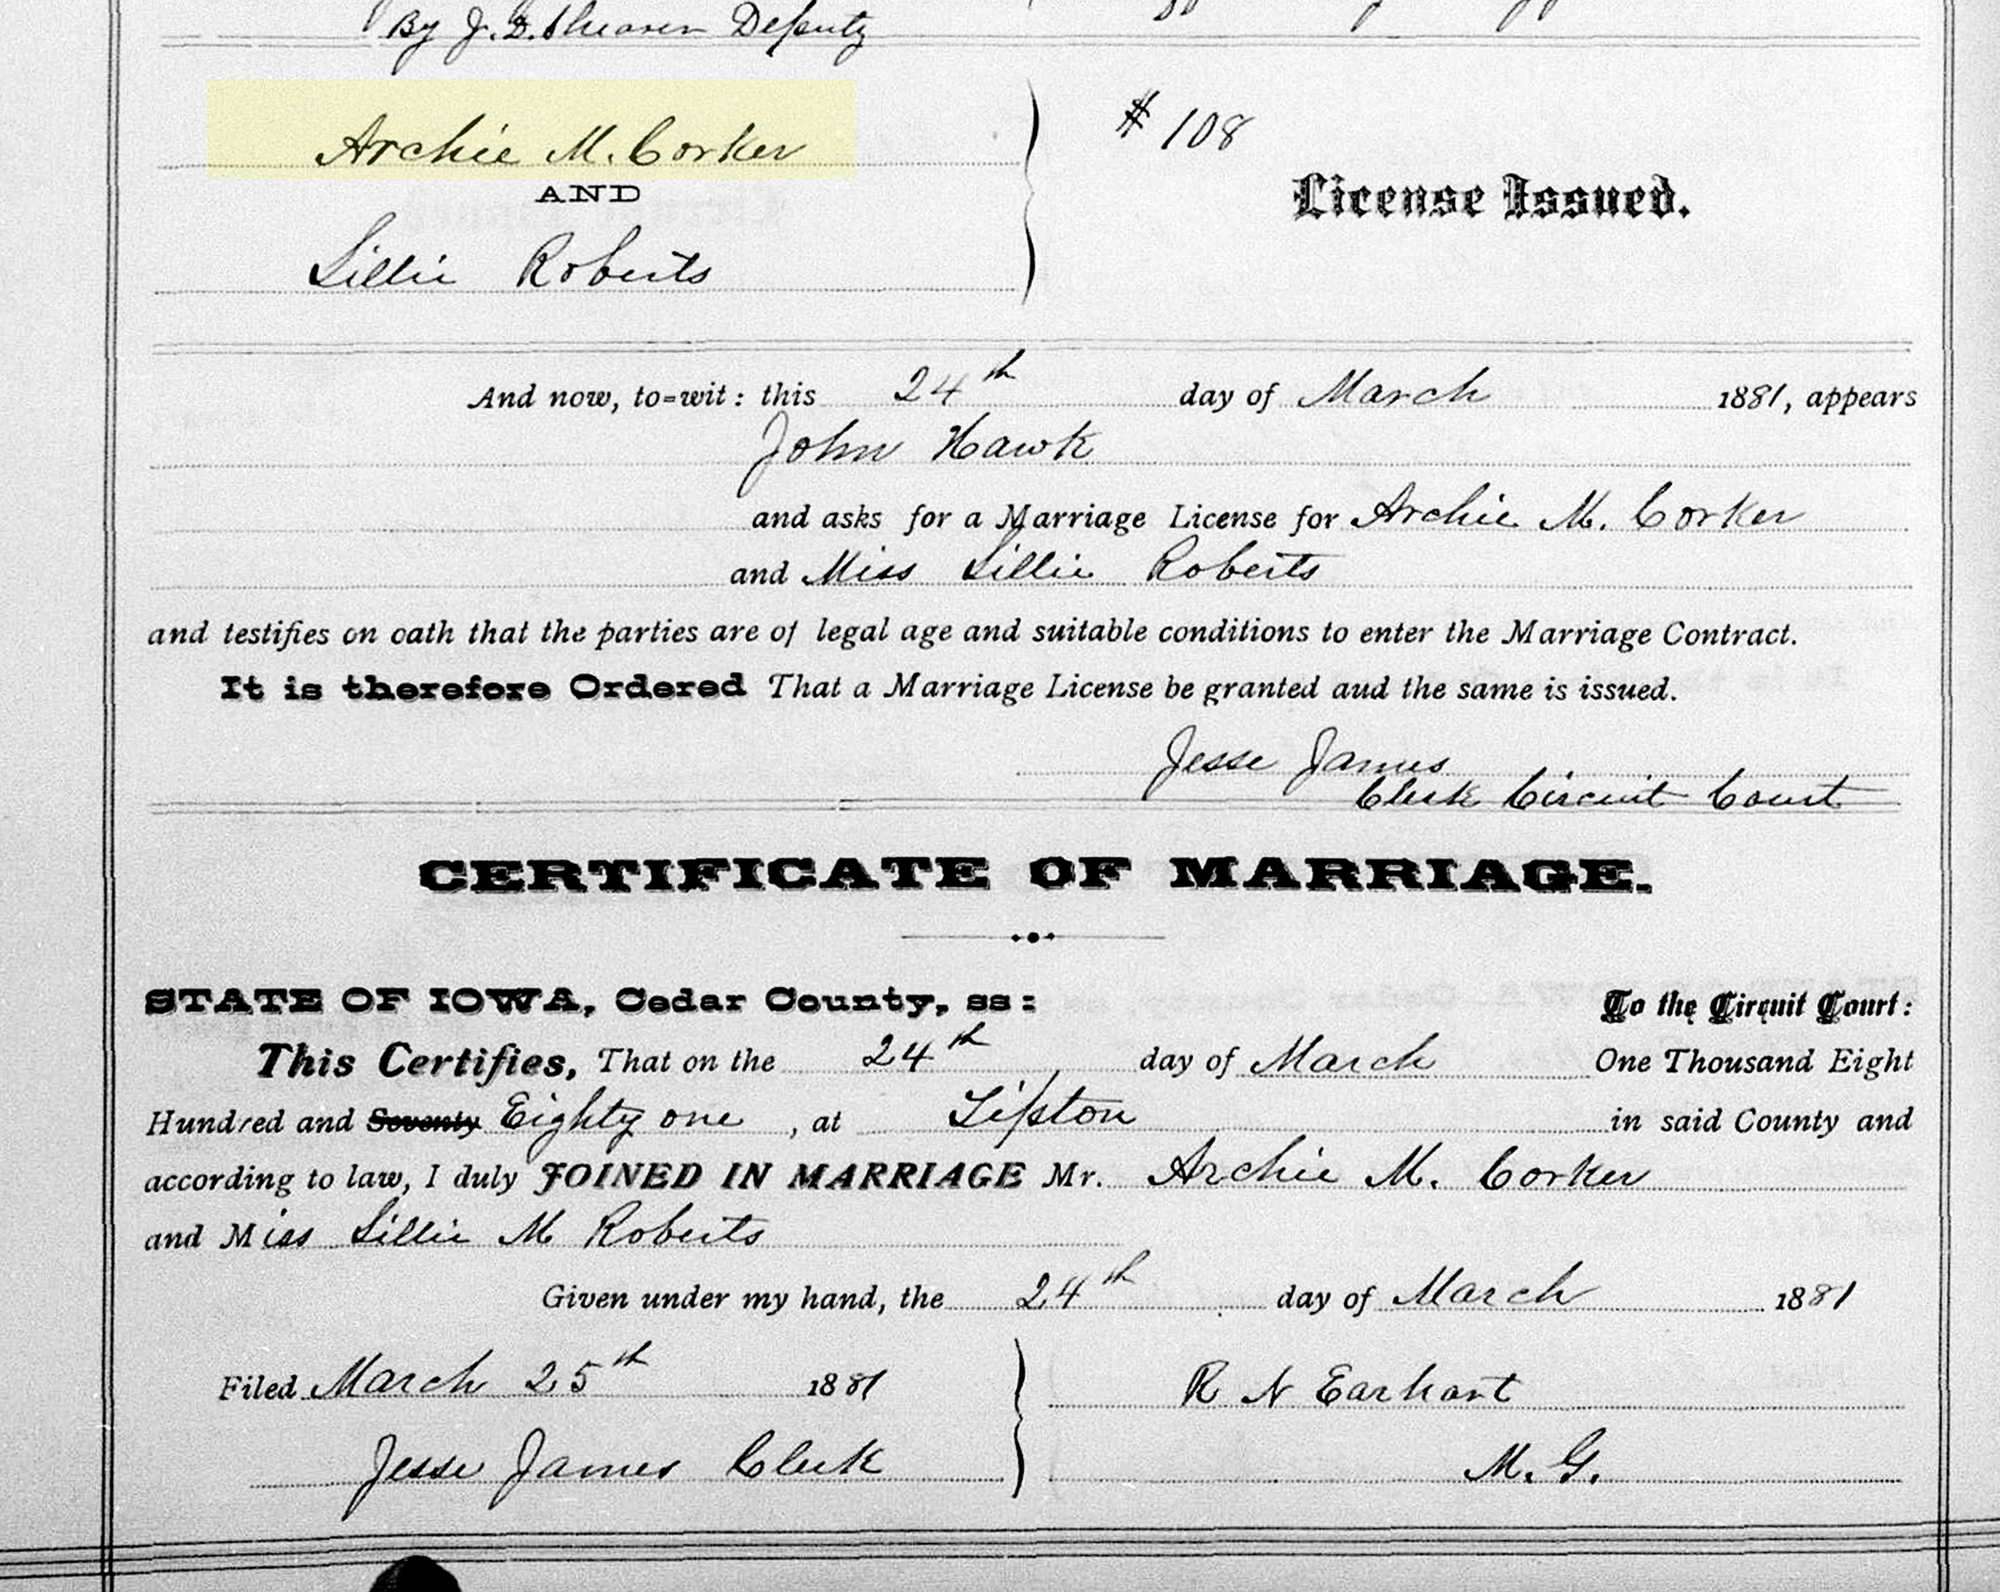 By J. D. Shearer Deputy
Archie M. Corker
AND
Lillie Roberts
# 108
License Issued.
And now, to-wit: this 24th day of March 1881, appears
John Hawk
and asks for a Marriage License for Archie M. Corker
and Miss Lillie Roberts
and testifies on oath that the parties are of legal age and suitable conditions to enter the Marriage Contract.
It is therefore Ordered That a Marriage License be granted aud the same is issued.
Jesse James
Clerk Circuit Court
CERTIFICATE OF MARRIAGE.
STATE OF IOWA, Cedar County, ss: To the Circuit Court:
This Certifies, That on the 24th day of March One Thousand Eight
Hundred and Seventy Eighty one, at Tipton in said County and
according to law, I duly JOINED IN MARRIAGE Mr. Archie M. Corker
and Miss Lillie M Roberts
Given under my hand, the 24th day of March 1881
Filed March 25th 1881
Jesse James Clerk
R N Earhart
M. G.